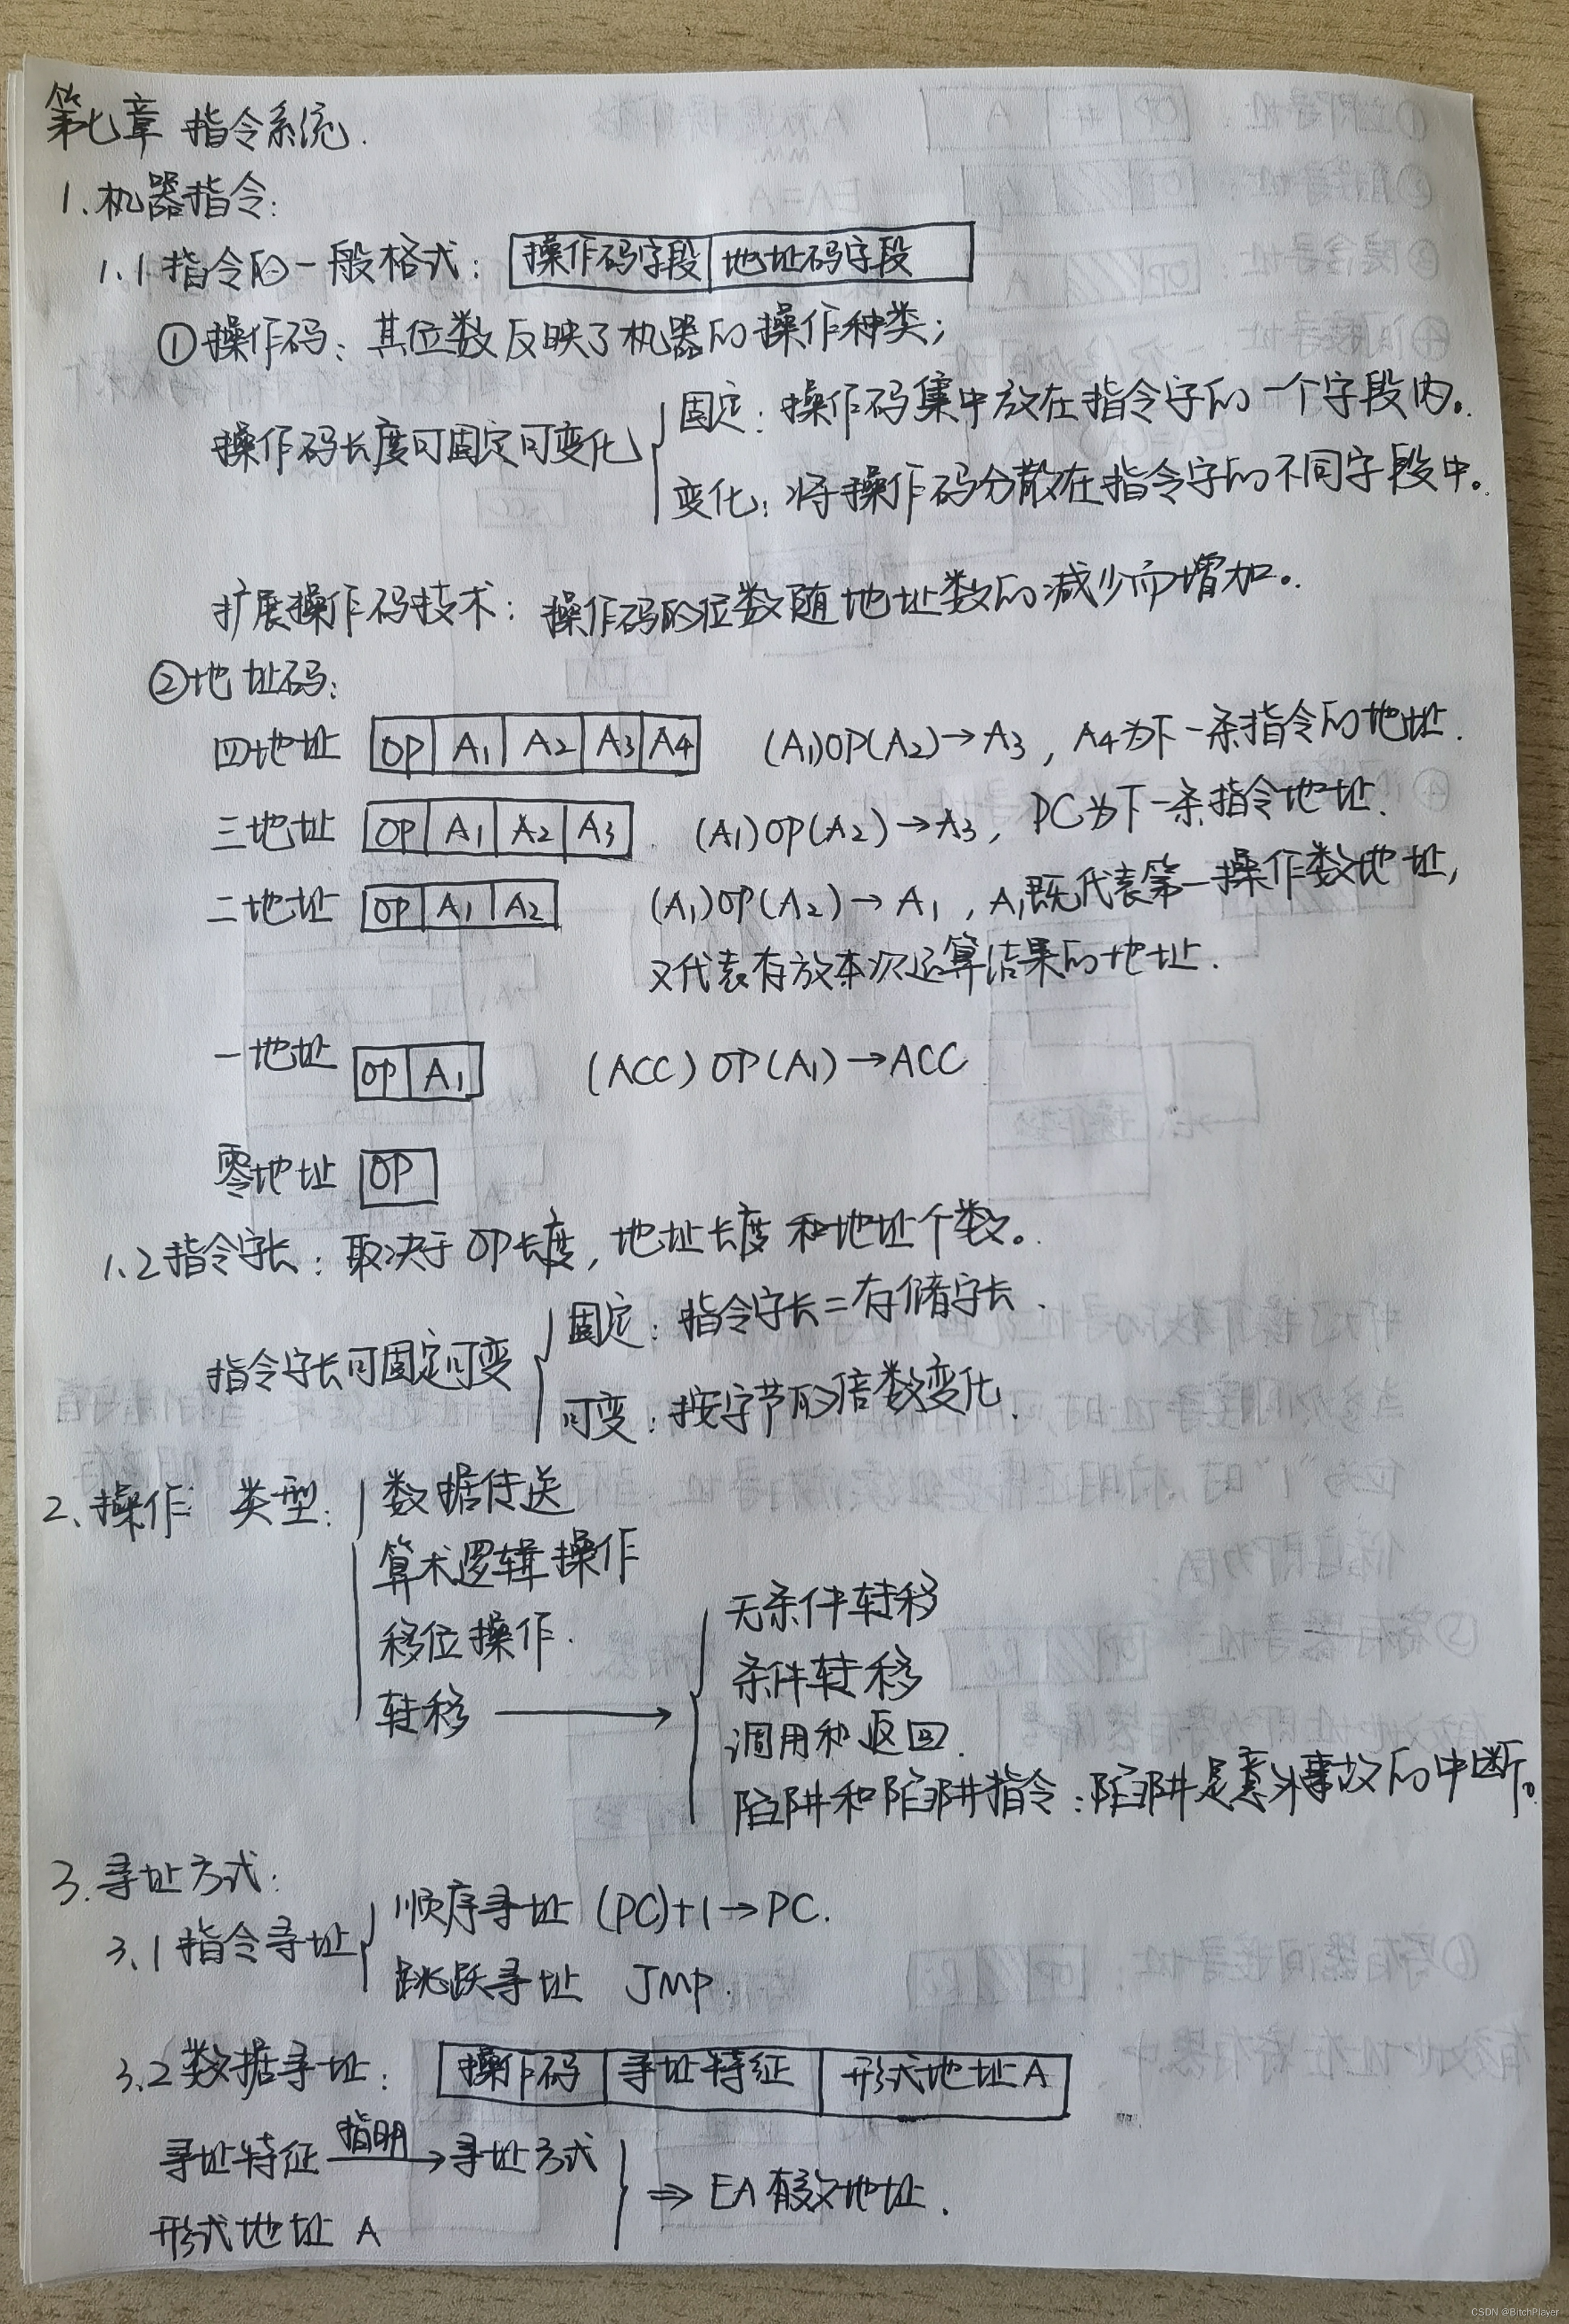 第七章 指令系统.
1.机器指令:
1.1指令的一般格式: 操作码字段 地址码字段
①操作码: 其位数反映了机器的操作种类;
操作码长度可固定可变化
固定: 操作码集中放在指令字的一个字段内。
变化: 将操作码分散在指令字的不同字段中。
扩展操作码技术: 操作码的位数随地址数的减少而增加。
②地址码:
四地址 OP A1 A2 A3 A4 (A1)OP(A2)→A3, A4为下一条指令的地址.
三地址 OP A1 A2 A3 (A1)OP(A2)→A3, PC为下一条指令地址.
二地址 OP A1 A2 (A1)OP(A2)→A1, A1既代表第一操作数地址,
又代表存放本次运算结果的地址.
一地址 OP A1 (ACC)OP(A1)→ACC
零地址 OP
1.2指令字长: 取决于OP长度, 地址长度和地址个数。
指令字长可固定可变
固定: 指令字长=存储字长.
可变: 按字节的倍数变化.
2、操作 类型:
数据传送
算术逻辑操作
移位操作.
转移 →
无条件转移
条件转移
调用和返回.
陷阱和陷阱指令: 陷阱是意外事故的中断。
3.寻址方式:
3.1指令寻址
顺序寻址 (PC)+1→PC.
跳跃寻址 JMP.
3.2数据寻址: 操作码 寻址特征 形式地址A
寻址特征 指明→ 寻址方式
形式地址 A
⇒ EA有效地址.
CSDN @BitchPlayer